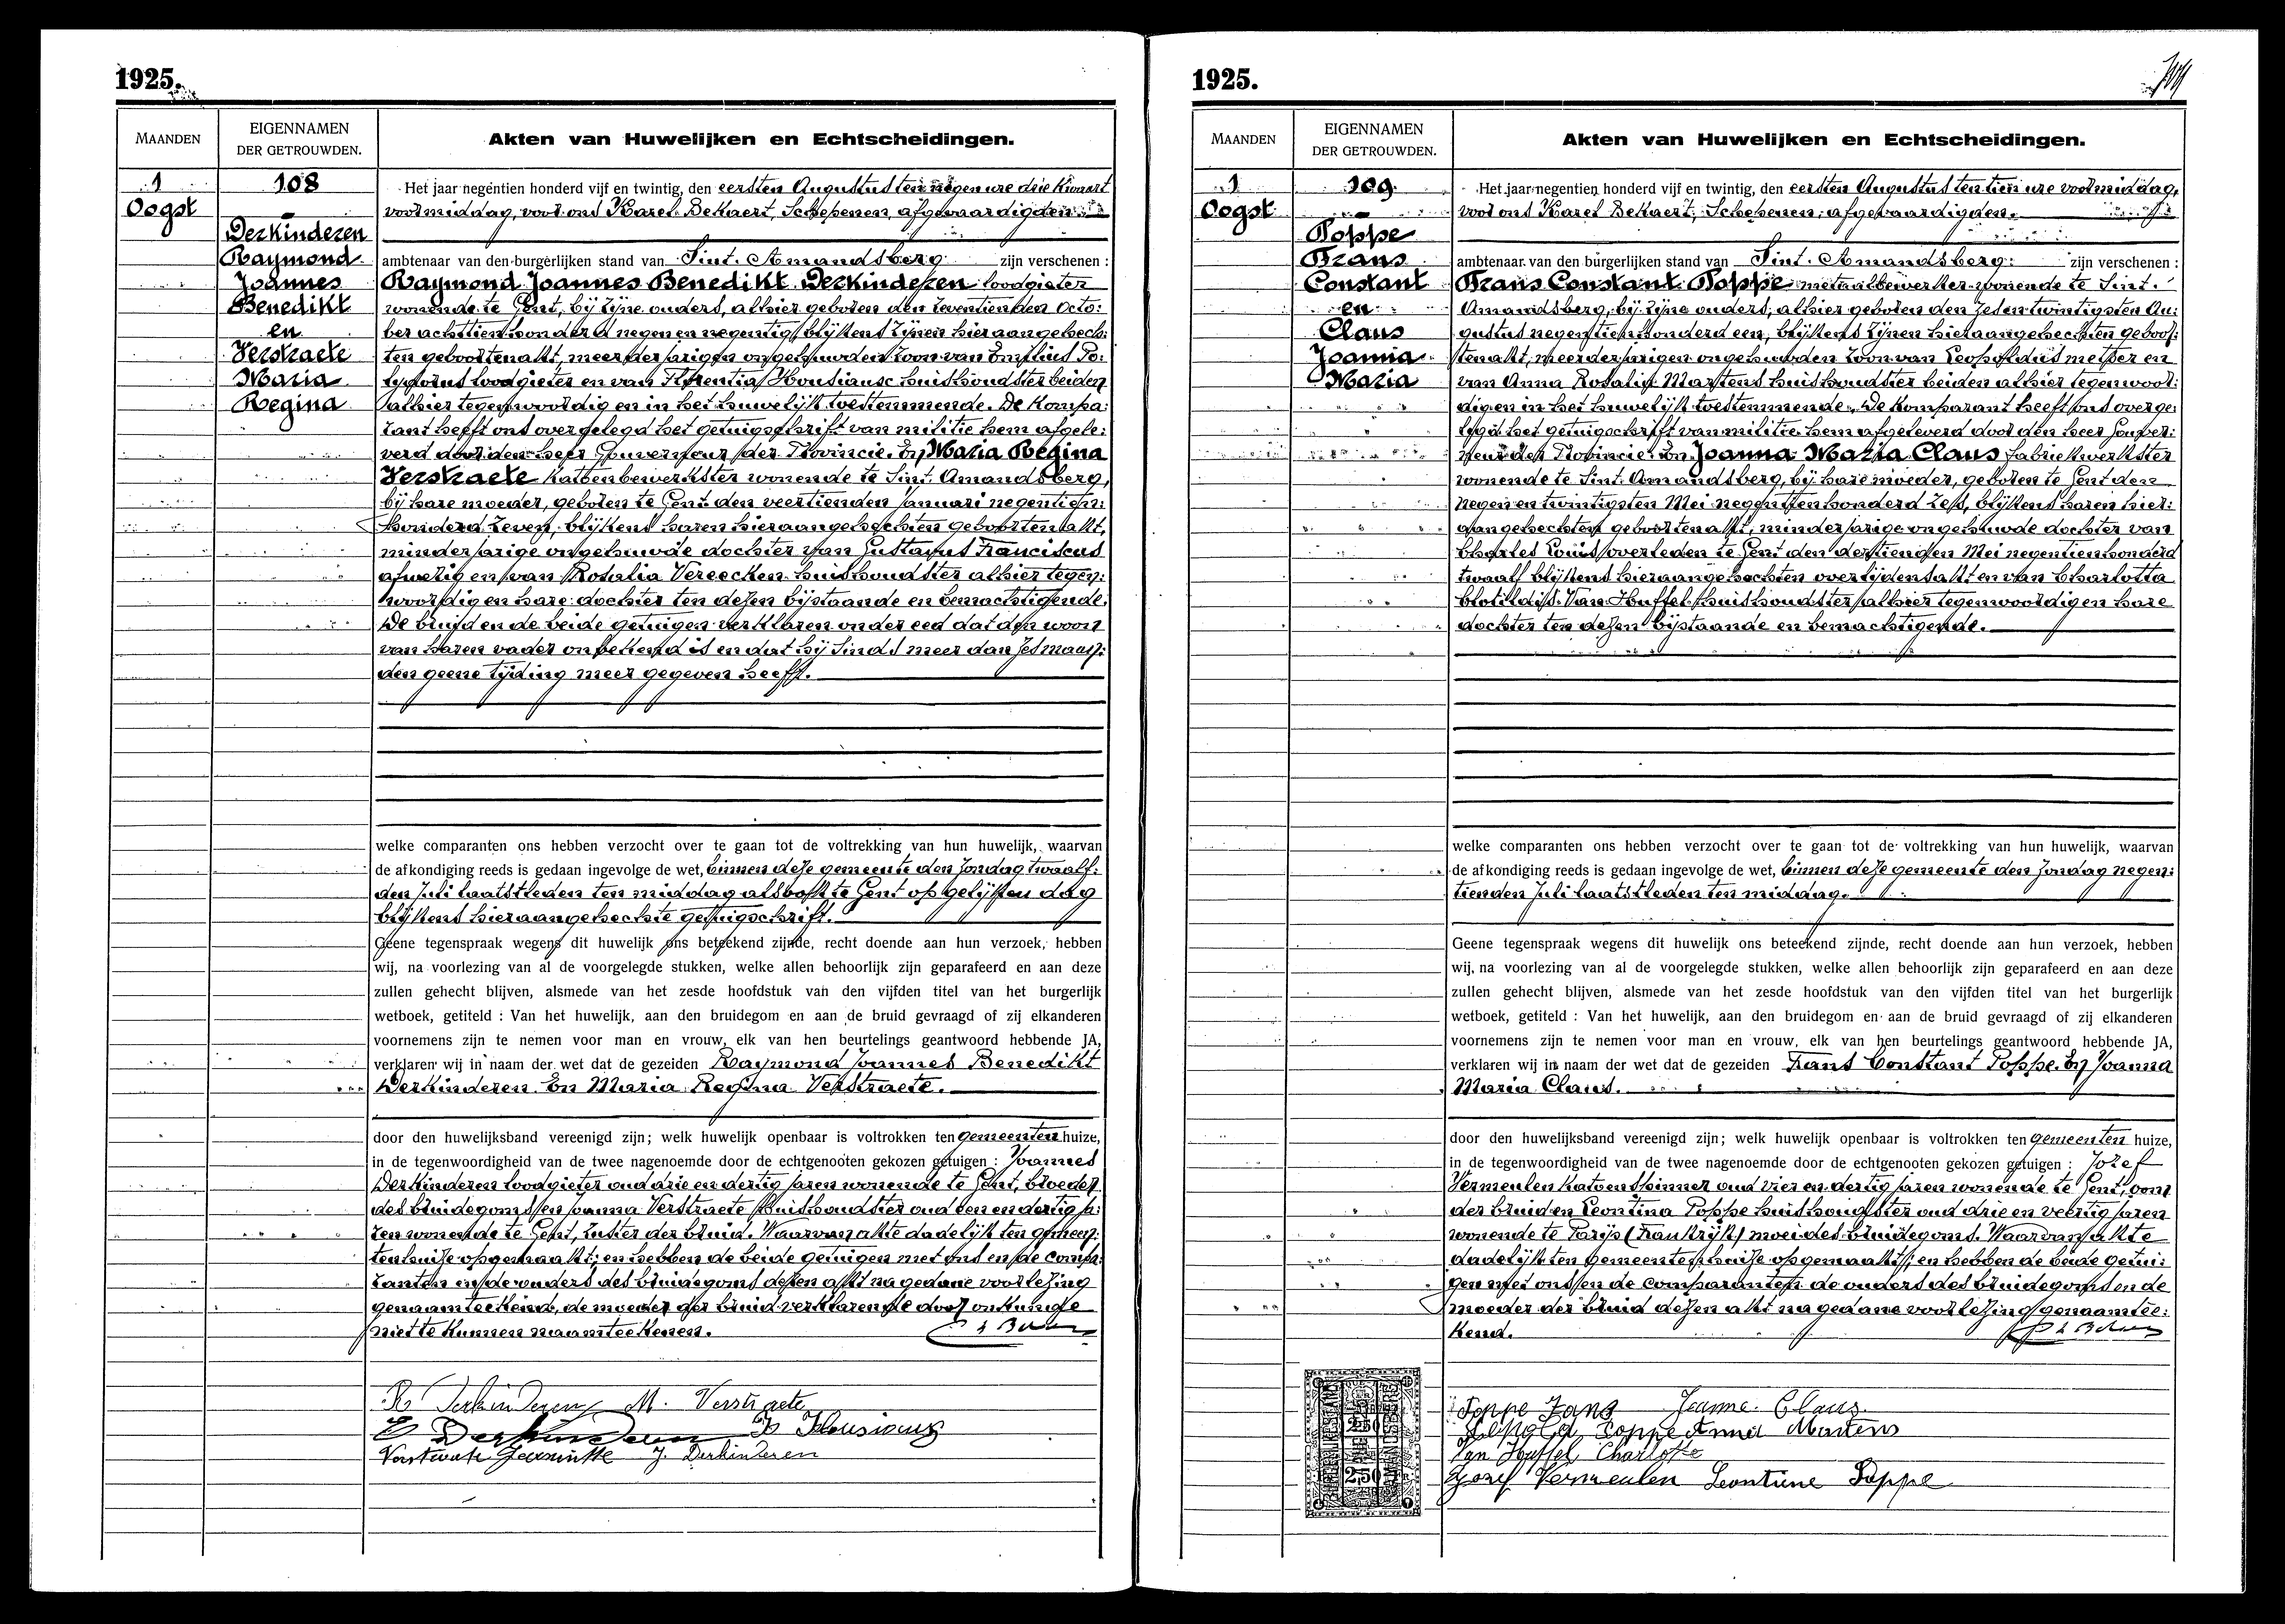 1925.
MAANDEN
EIGENNAMEN
DER GETROUWDEN.
Akten van Huwelijken en Echtscheidingen.
1
Oogst
108
Derkinderen
Raymond
Joannes
Benedikt
en
Verstraete
Maria
Regina
Het jaar negentien honderd vijf en twintig, den eersten Augustus ten negen ure drie kwaart
voormiddag, voor ons Karel Bekaert, Schepenen, afgevaardigden
ambtenaar van den burgerlijken stand van Sint. Amandsberg zijn verschenen :
Raymond Joannes Benedikt Derkinderen loodgieter
wonende te Gent, bij zijne ouders, alhier geboren den zeventienden Octo:
ber achttien honderd negen en negentig, blijkens zijnen hieraangehech:
ten geboortenakt, meerderjarigen ongehuwden zoon van Emilius Po:
lydorus loodgieter en van Florentia Housiaux huishoudster beiden
alhier tegenwoordig en in het huwelijk toestemmende. De kompa:
rant heeft ons overgelegd het getuigschrift van militie hem afgele:
verd door den heer Gouverneur der Provincie. En Maria Regina
Verstraete kattenbewerkster wonende te Sint. Amandsberg,
bij hare moeder, geboren te Gent den veertienden Januari negentien:
honderd zeven, blijkens haren hieraangehechten geboortenakt,
minderjarige ongehuwde dochter van Gustavus Franciscus
afwezig en van Rosalia Vereecken huishoudster alhier tegen:
woordig en hare dochter ten dezen bijstaande en bemachtigende.
De bruid en de beide getuigen verklaren onder eed dat den woon
van haren vader onbekend is en dat hij sinds meer dan zes maan:
den geene tijding meer gegeven heeft.
welke comparanten ons hebben verzocht over te gaan tot de voltrekking van hun huwelijk, waarvan
de afkondiging reeds is gedaan ingevolge de wet, binnen deze gemeente den Zondag twaalf:
den Juli laatstleden ten middag alsook te Gent op gelijken dag
blijkens hieraangehechte getuigschrift.
Geene tegenspraak wegens dit huwelijk ons beteekend zijnde, recht doende aan hun verzoek, hebben
wij, na voorlezing van al de voorgelegde stukken, welke allen behoorlijk zijn geparafeerd en aan deze
zullen gehecht blijven, alsmede van het zesde hoofdstuk van den vijfden titel van het burgerlijk
wetboek, getiteld : Van het huwelijk, aan den bruidegom en aan de bruid gevraagd of zij elkanderen
voornemens zijn te nemen voor man en vrouw, elk van hen beurtelings geantwoord hebbende JA,
verklaren wij in naam der wet dat de gezeiden Raymond Joannes Benedikt
Derkinderen. En Maria Regina Verstraete.
door den huwelijksband vereenigd zijn; welk huwelijk openbaar is voltrokken ten gemeenten huize,
in de tegenwoordigheid van de twee nagenoemde door de echtgenooten gekozen getuigen : Joannes
Derkinderen loodgieter oud drie en dertig jaren wonende te Gent, broeder
des bruidegoms en Joanna Verstraete huishoudster oud een en dertig ja:
ren wonende te Gent, zuster der bruid. Waarvan akte dadelijk ten gemeen:
tenhuize opgemaakt; en hebben de beide getuigen met ons en de compa:
ranten en de ouders des bruidegoms dezen akt na gedane voorlezing
genaamteekend, de moeder der bruid verklarende door onkunde
niet te kunnen naamteekenen.
R Derkinderen M. Verstraete
E Derkinderen F Housiaux
Verstraete Jeannette J. Derkinderen
1925.
MAANDEN
EIGENNAMEN
DER GETROUWDEN.
Akten van Huwelijken en Echtscheidingen.
1
Oogst
109
Poppe
Frans
Constant
en
Claus
Joanna
Maria
Het jaar negentien honderd vijf en twintig, den eersten Augustus ten tien ure voormiddag,
voor ons Karel Bekaert, Schepenen, afgevaardigden.
ambtenaar van den burgerlijken stand van Sint. Amandsberg. zijn verschenen :
Frans Constant Poppe metaalbewerker wonende te Sint.
Amandsberg, bij zijne ouders, alhier geboren den zesen twintigsten Au:
gustus negentienhonderd een, blijkens zijnen hieraangehechten geboor:
tenakt, meerderjarigen ongehuwden zoon van Leopoldus metser en
van Anna Rosalia Martens huishoudster beiden alhier tegenwoor:
dig en in het huwelijk toestemmende. De komparant heeft ons overge:
legd het getuigschrift van militie hem afgeleverd door den heer Gouver:
neur der Provincie. En Joanna Maria Claus fabriekwerkster
wonende te Sint. Amandsberg, bij hare moeder, geboren te Gent den
negen en twintigsten Mei negentienhonderd zes, blijkens haren hier:
aangehechten geboortenakt, minderjarige ongehuwde dochter van
Charles Louis overleden te Gent den dertienden Mei negentienhonderd
twaalf blijkens hieraangehechten overlijdensakt en van Charlotta
Clotildis Van Huffel huishoudster alhier tegenwoordig en hare
dochter ten dezen bijstaande en bemachtigende.
welke comparanten ons hebben verzocht over te gaan tot de voltrekking van hun huwelijk, waarvan
de afkondiging reeds is gedaan ingevolge de wet, binnen deze gemeente den Zondag negen:
tienden Juli laatstleden ten middag.
Geene tegenspraak wegens dit huwelijk ons beteekend zijnde, recht doende aan hun verzoek, hebben
wij, na voorlezing van al de voorgelegde stukken, welke allen behoorlijk zijn geparafeerd en aan deze
zullen gehecht blijven, alsmede van het zesde hoofdstuk van den vijfden titel van het burgerlijk
wetboek, getiteld : Van het huwelijk, aan den bruidegom en aan de bruid gevraagd of zij elkanderen
voornemens zijn te nemen voor man en vrouw, elk van hen beurtelings geantwoord hebbende JA,
verklaren wij in naam der wet dat de gezeiden Frans Constant Poppe. En Joanna
Maria Claus.
door den huwelijksband vereenigd zijn; welk huwelijk openbaar is voltrokken ten gemeenten huize,
in de tegenwoordigheid van de twee nagenoemde door de echtgenooten gekozen getuigen : Jozef
Vermeulen katoenspinner oud vier en dertig jaren wonende te Gent, oom
der bruid en Leontina Poppe huishoudster oud drie en veertig jaren
wonende te Parijs (Frankrijk) moei des bruidegoms. Waarvan akte
dadelijk ten gemeentenhuize opgemaakt; en hebben de beide getui:
gen met ons en de comparanten de ouders des bruidegoms en de
moeder der bruid dezen akt na gedane voorlezing genaamtee:
kend.
Poppe Frans Jeanne Claus
Leopold Poppe Anna Martens
Van Huffel Charlotte
Jozef Vermeulen Leontine Poppe
2,50
2,50